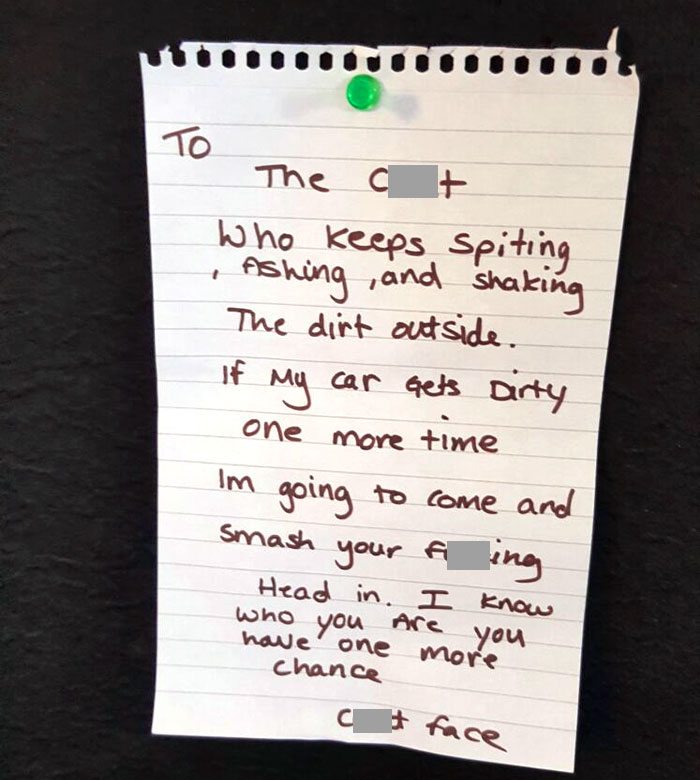 TO
The
Who keeps Spiting
, Ashing ,and shaking
The dirt outside.
If My car Gets Dirty
one more time
Im going to come and
Smash your
Head in. I know
who you Are you
have one more
chance
face